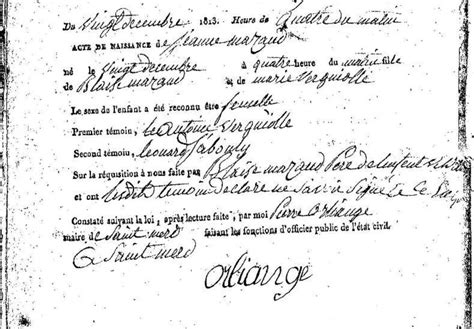 Du Vingt decembre 1813. Heure de quatre du matin
ACTE DE NAISSANCE de Jeanne mazaud
né le Vingt decembre à quatre heure du matin fille
de Blaise mazaud & de marie Verguiolle
Le sexe de l'enfant a été reconnu être femelle
Premier témoin, antoine Verguiolle
Second témoin, leonard Sabouly
Sur la réquisition à nous faite par Blaise mazaud Pere de lenfent
et ont temoin declare ne Savoir Signé
Constaté suivant la loi, après lecture faite, par moi Pierre Orliange
maire de Saint merd faisant les fonctions d'officier public de l'état civil.
a Saint merd
orliange